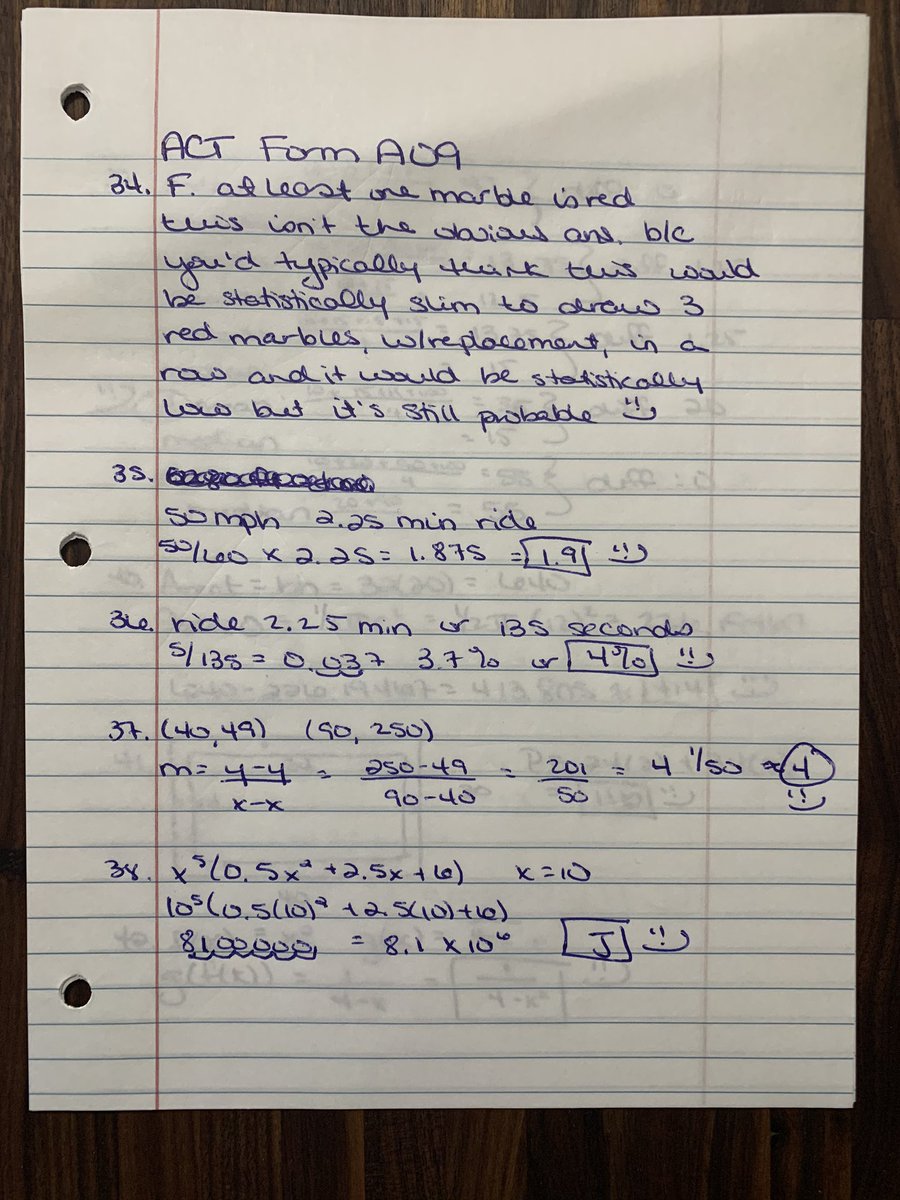 ACT Form A09
34. F. at least one marble is red
this isn't the obvious ans. b/c
you'd typically think this would
be statistically slim to draw 3
red marbles, w/replacement, in a
row and it would be statistically
low but it's still probable
35.
50mph 2.25 min ride
50/60 x 2.25 = 1.875 = 1.9
36. ride 2.25 min or 135 seconds
5/135 = 0.037 3.7% or 4%
37. (40,49) (90, 250)
m = y-y/x-x = 250-49/90-40 = 201/50 = 4 1/50 ≈ 4
38. x⁵(0.5x² + 2.5x + 6) x = 10
10⁵(0.5(10)² + 2.5(10) + 6)
8100000 = 8.1 x 10⁶ J